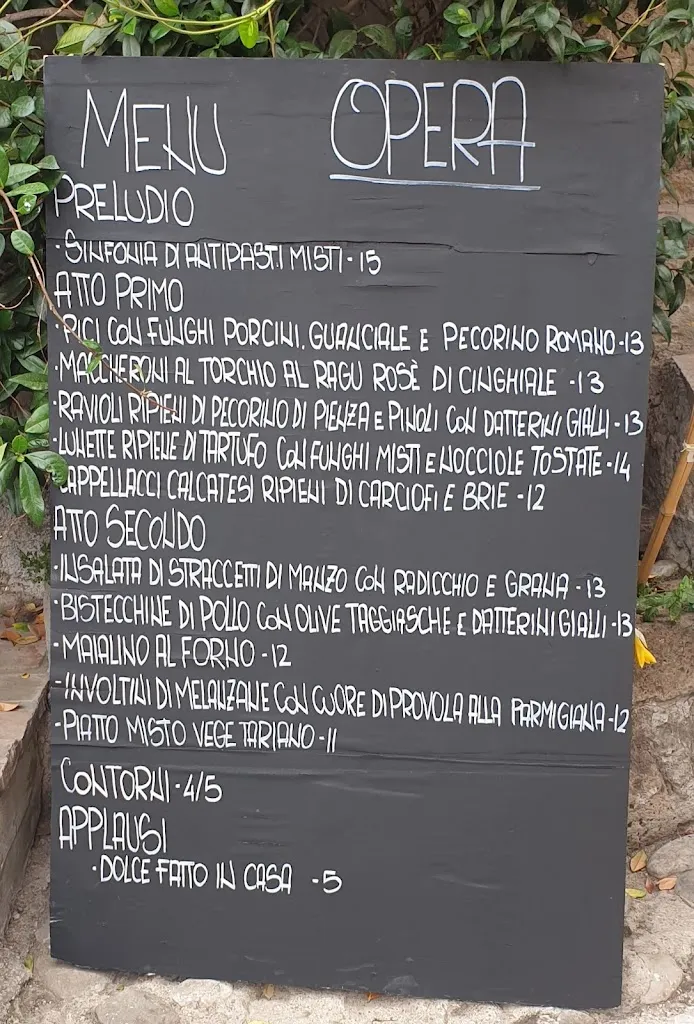 MENU OPERA
PRELUDIO
- SINFONIA DI ANTIPASTI MISTI - 15
ATTO PRIMO
- PICI CON FUNGHI PORCINI, GUANCIALE E PECORINO ROMANO - 13
- MACCHERONI AL TORCHIO AL RAGU ROSÈ DI CINGHIALE - 13
- RAVIOLI RIPIENI DI PECORINO DI PIENZA E PINOLI CON DATTERINI GIALLI - 13
- LUNETTE RIPIENE DI TARTUFO CON FUNGHI MISTI E NOCCIOLE TOSTATE - 14
- CAPPELLACCI CALCATESI RIPIENI DI CARCIOFI E BRIE - 12
ATTO SECONDO
- INSALATA DI STRACCETTI DI MANZO CON RADICCHIO E GRANA - 13
- BISTECCHINE DI POLLO CON OLIVE TAGGIASCHE E DATTERINI GIALLI - 13
- MAIALINO AL FORNO - 12
- INVOLTINI DI MELANZANE CON CUORE DI PROVOLA ALLA PARMIGIANA - 12
- PIATTO MISTO VEGETARIANO - 11
CONTORNI - 4/5
APPLAUSI
- DOLCE FATTO IN CASA - 5